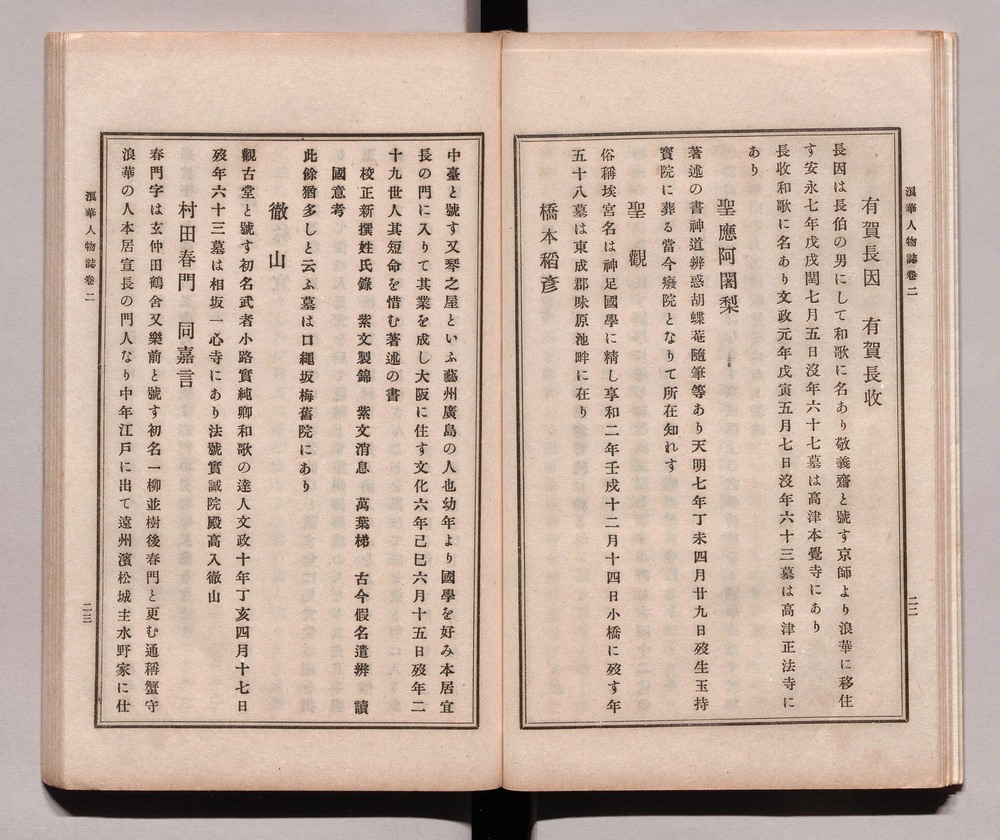 浪華人物誌卷二
二二
有賀長因　有賀長收
長因は長伯の男にして和歌に名あり敬義齋と號す京師より浪華に移住
す安永七年戊戌閏七月五日沒年六十七墓は高津本覺寺にあり
長收和歌に名あり文政元年戊寅五月七日沒年六十三墓は高津正法寺に
あり
聖應阿闍梨
著述の書神道辨惑胡蝶菴隨筆等あり天明七年丁未四月廿九日歿生玉持
寳院に葬る當今癈院となりて所在知れす
聖觀
俗稱埃宮名は神足國學に精し享和二年壬戌十二月十四日小橋に歿す年
五十八墓は東成郡味原池畔に在り
橋本稻彦
中臺と號す又琴之屋といふ藝州廣島の人也幼年より國學を好み本居宜
長の門に入りて其業を成し大阪に住す文化六年己巳六月十五日歿年二
十九世人其短命を惜む著述の書
校正新撰姓氏錄　紫文製錦　紫文消息　萬葉梯　古今假名遣辨　讀
國意考
此餘猶多しと云ふ墓は口繩坂梅舊院にあり
徹山
觀古堂と號す初名武者小路實純卿和歌の達人文政十年丁亥四月十七日
歿年六十三墓は相坂一心寺にあり法號實誠院殿高入徹山
村田春門　同嘉言
春門字は玄仲田鶴舍又樂前と號す初名一柳並樹後春門と更む通稱蟹守
浪華の人本居宣長の門人なり中年江戸に出て遠州濱松城主水野家に仕
浪華人物誌卷二
二三